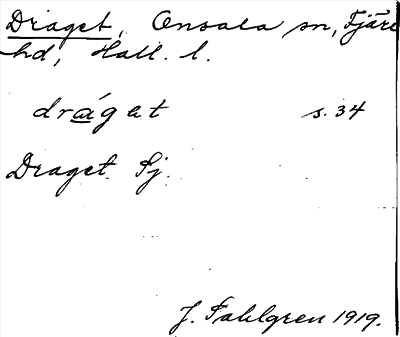 Draget, Onsala sn, Fjäre
hd, Hall. l.
dráget s. 34
Draget. Sj.
J. Sahlgren 1919.